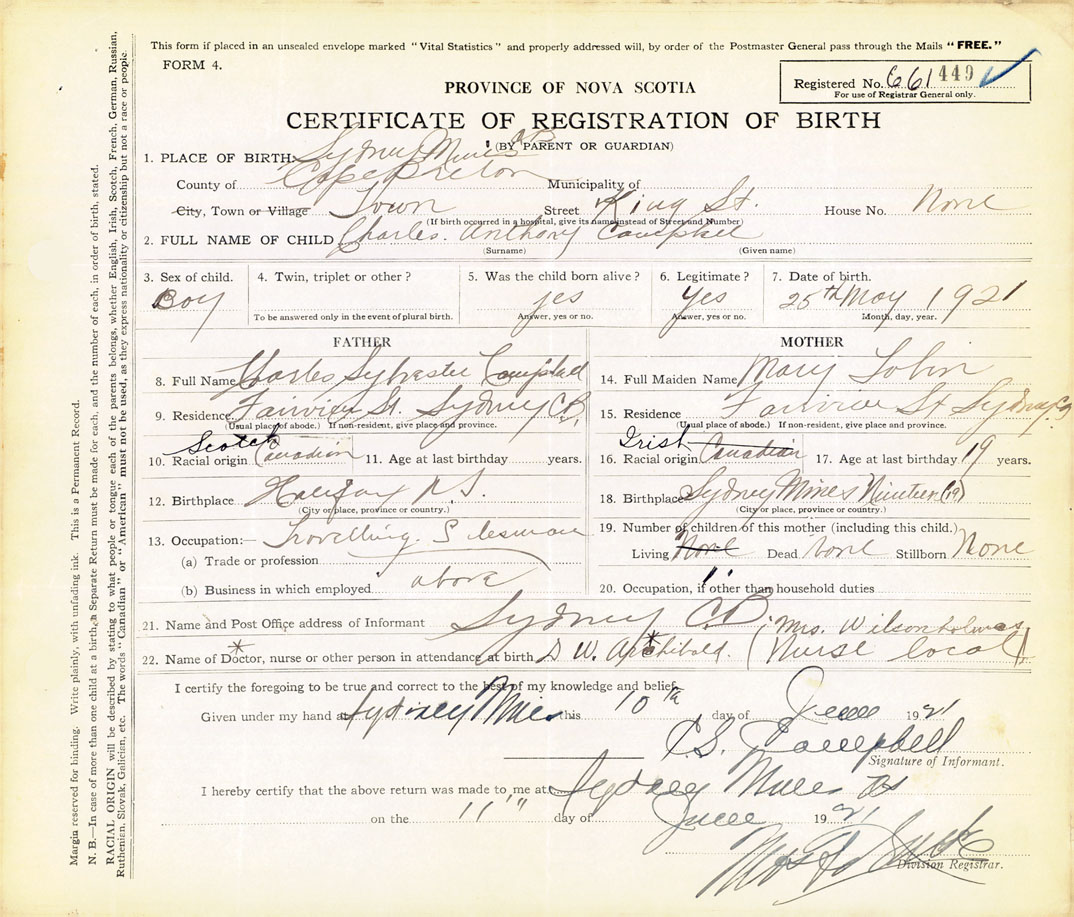 This form if placed in an unsealed envelope marked "Vital Statistics" and properly addressed will, by order of the Postmaster General pass through the Mails "FREE."
FORM 4.
Registered No. 661 449
For use of Registrar General only.
PROVINCE OF NOVA SCOTIA
CERTIFICATE OF REGISTRATION OF BIRTH
(BY PARENT OR GUARDIAN)
1. PLACE OF BIRTH: Sydney Mines C B
County of Cape Breton Municipality of
City, Town or Village Town Street King St. House No. None
(If birth occurred in a hospital, give its name instead of Street and Number)
2. FULL NAME OF CHILD Charles. Anthony Campbell
(Surname) (Given name)
3. Sex of child. 4. Twin, triplet or other? 5. Was the child born alive? 6. Legitimate? 7. Date of birth.
Boy yes Yes 25th May 1921
To be answered only in the event of plural birth. Answer, yes or no. Answer, yes or no. Month, day, year.
FATHER
8. Full Name Charles Sylvester Campbell
9. Residence Fairview St. Sydney C.B.
(Usual place of abode.) If non-resident, give place and province.
10. Racial origin Scotch Canadian 11. Age at last birthday years.
12. Birthplace Halifax N.S.
(City or place, province or country.)
13. Occupation:— Travelling Salesman
(a) Trade or profession
(b) Business in which employed above
MOTHER
14. Full Maiden Name Mary Tobin
15. Residence Fairview St Sydney C.B
(Usual place of abode.) If non-resident, give place and province.
16. Racial origin Irish Canadian 17. Age at last birthday 19 years.
18. Birthplace Sydney Mines Nineteen (19)
(City or place, province or country.)
19. Number of children of this mother (including this child.)
Living None Dead None Stillborn None
20. Occupation, if other than household duties
21. Name and Post Office address of Informant Sydney C.B. (Mrs. Wilson
22. Name of Doctor, nurse or other person in attendance at birth D W. Archibald. (Nurse local)
I certify the foregoing to be true and correct to the best of my knowledge and belief.
Given under my hand at Sydney Mines this 10th day of June 1921
C.S. Campbell
Signature of Informant.
I hereby certify that the above return was made to me at Sydney Mines
on the 11 day of June 1921
Division Registrar.
Margin reserved for binding. Write plainly, with unfading ink. This is a Permanent Record.
N. B.—In case of more than one child at a birth, a Separate Return must be made for each, and the number of each, in order of birth, stated.
RACIAL ORIGIN will be described by stating to what people or tongue each of the parents belongs, whether English, Irish, Scotch, French, German, Russian,
Ruthenian, Slovak, Galician, etc. The words "Canadian" or "American" must not be used, as they express nationality or citizenship but not a race or people.